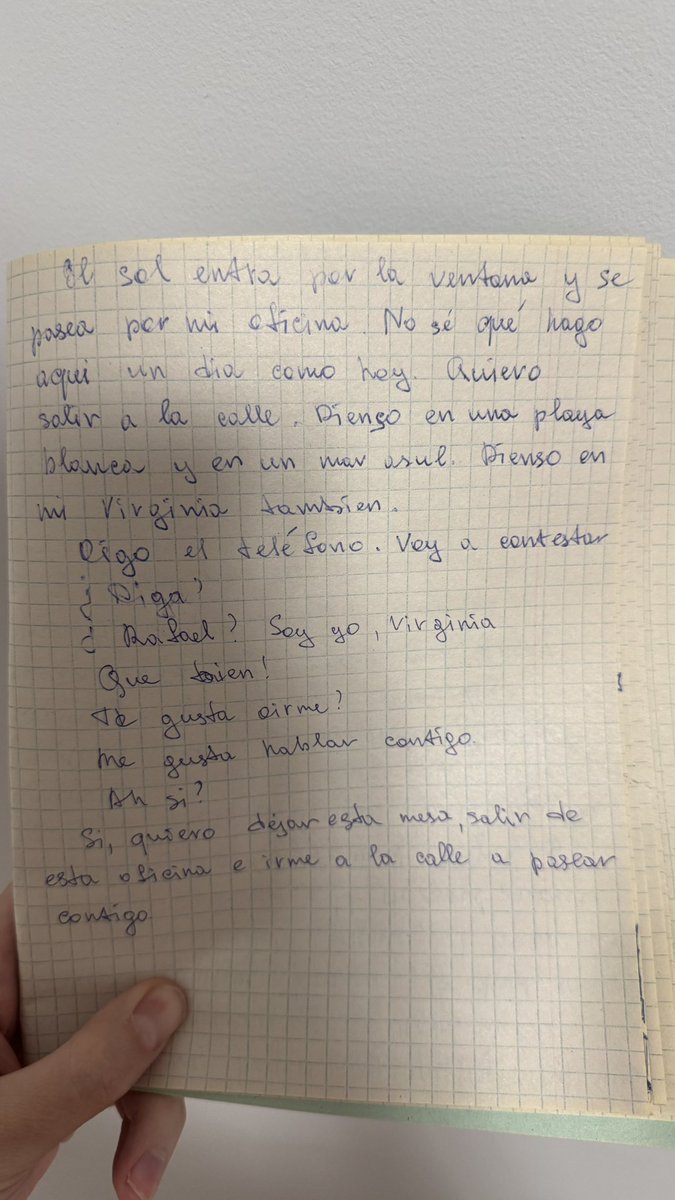 El sol entra por la ventana y se
pasea por mi oficina. No sé qué hago
aqui un dia como hoy. Quiero
salir a la calle. Pienso en una playa
blanca y en un mar asul. Pienso en
mi Virginia tambien.
Oigo el teléfono. Voy a contestar
¿ Diga?
¿ Rafael? Soy yo, Virginia
Que bien!
Te gusta oirme?
Me gusta hablar contigo.
Ah si?
Si, quiero dejar esta mesa, salir de
esta oficina e irme a la calle a pasear
contigo